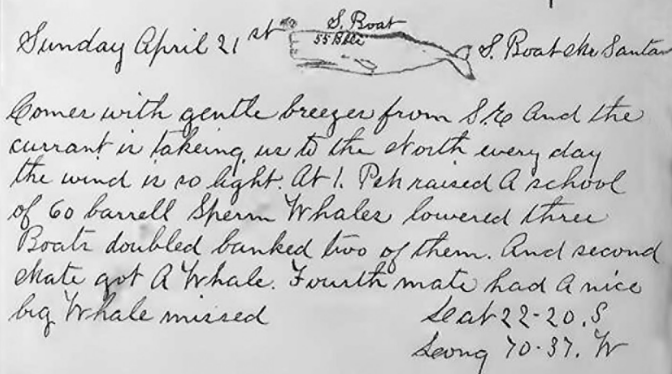 Sunday April 21st
S. Boat
55 Bbls
S. Boat Mr Santan
Comes with gentle breezes from S.E And the
currant is takeing us to the North every day
the wind is so light. At 1. P.M raised A school
of 60 barrell Sperm Whales lowered three
Boats doubled banked two of them. And second
Mate got A Whale. Fourth mate had A nice
big Whale missed
Leat 22-20. S
Leong 70-37. W